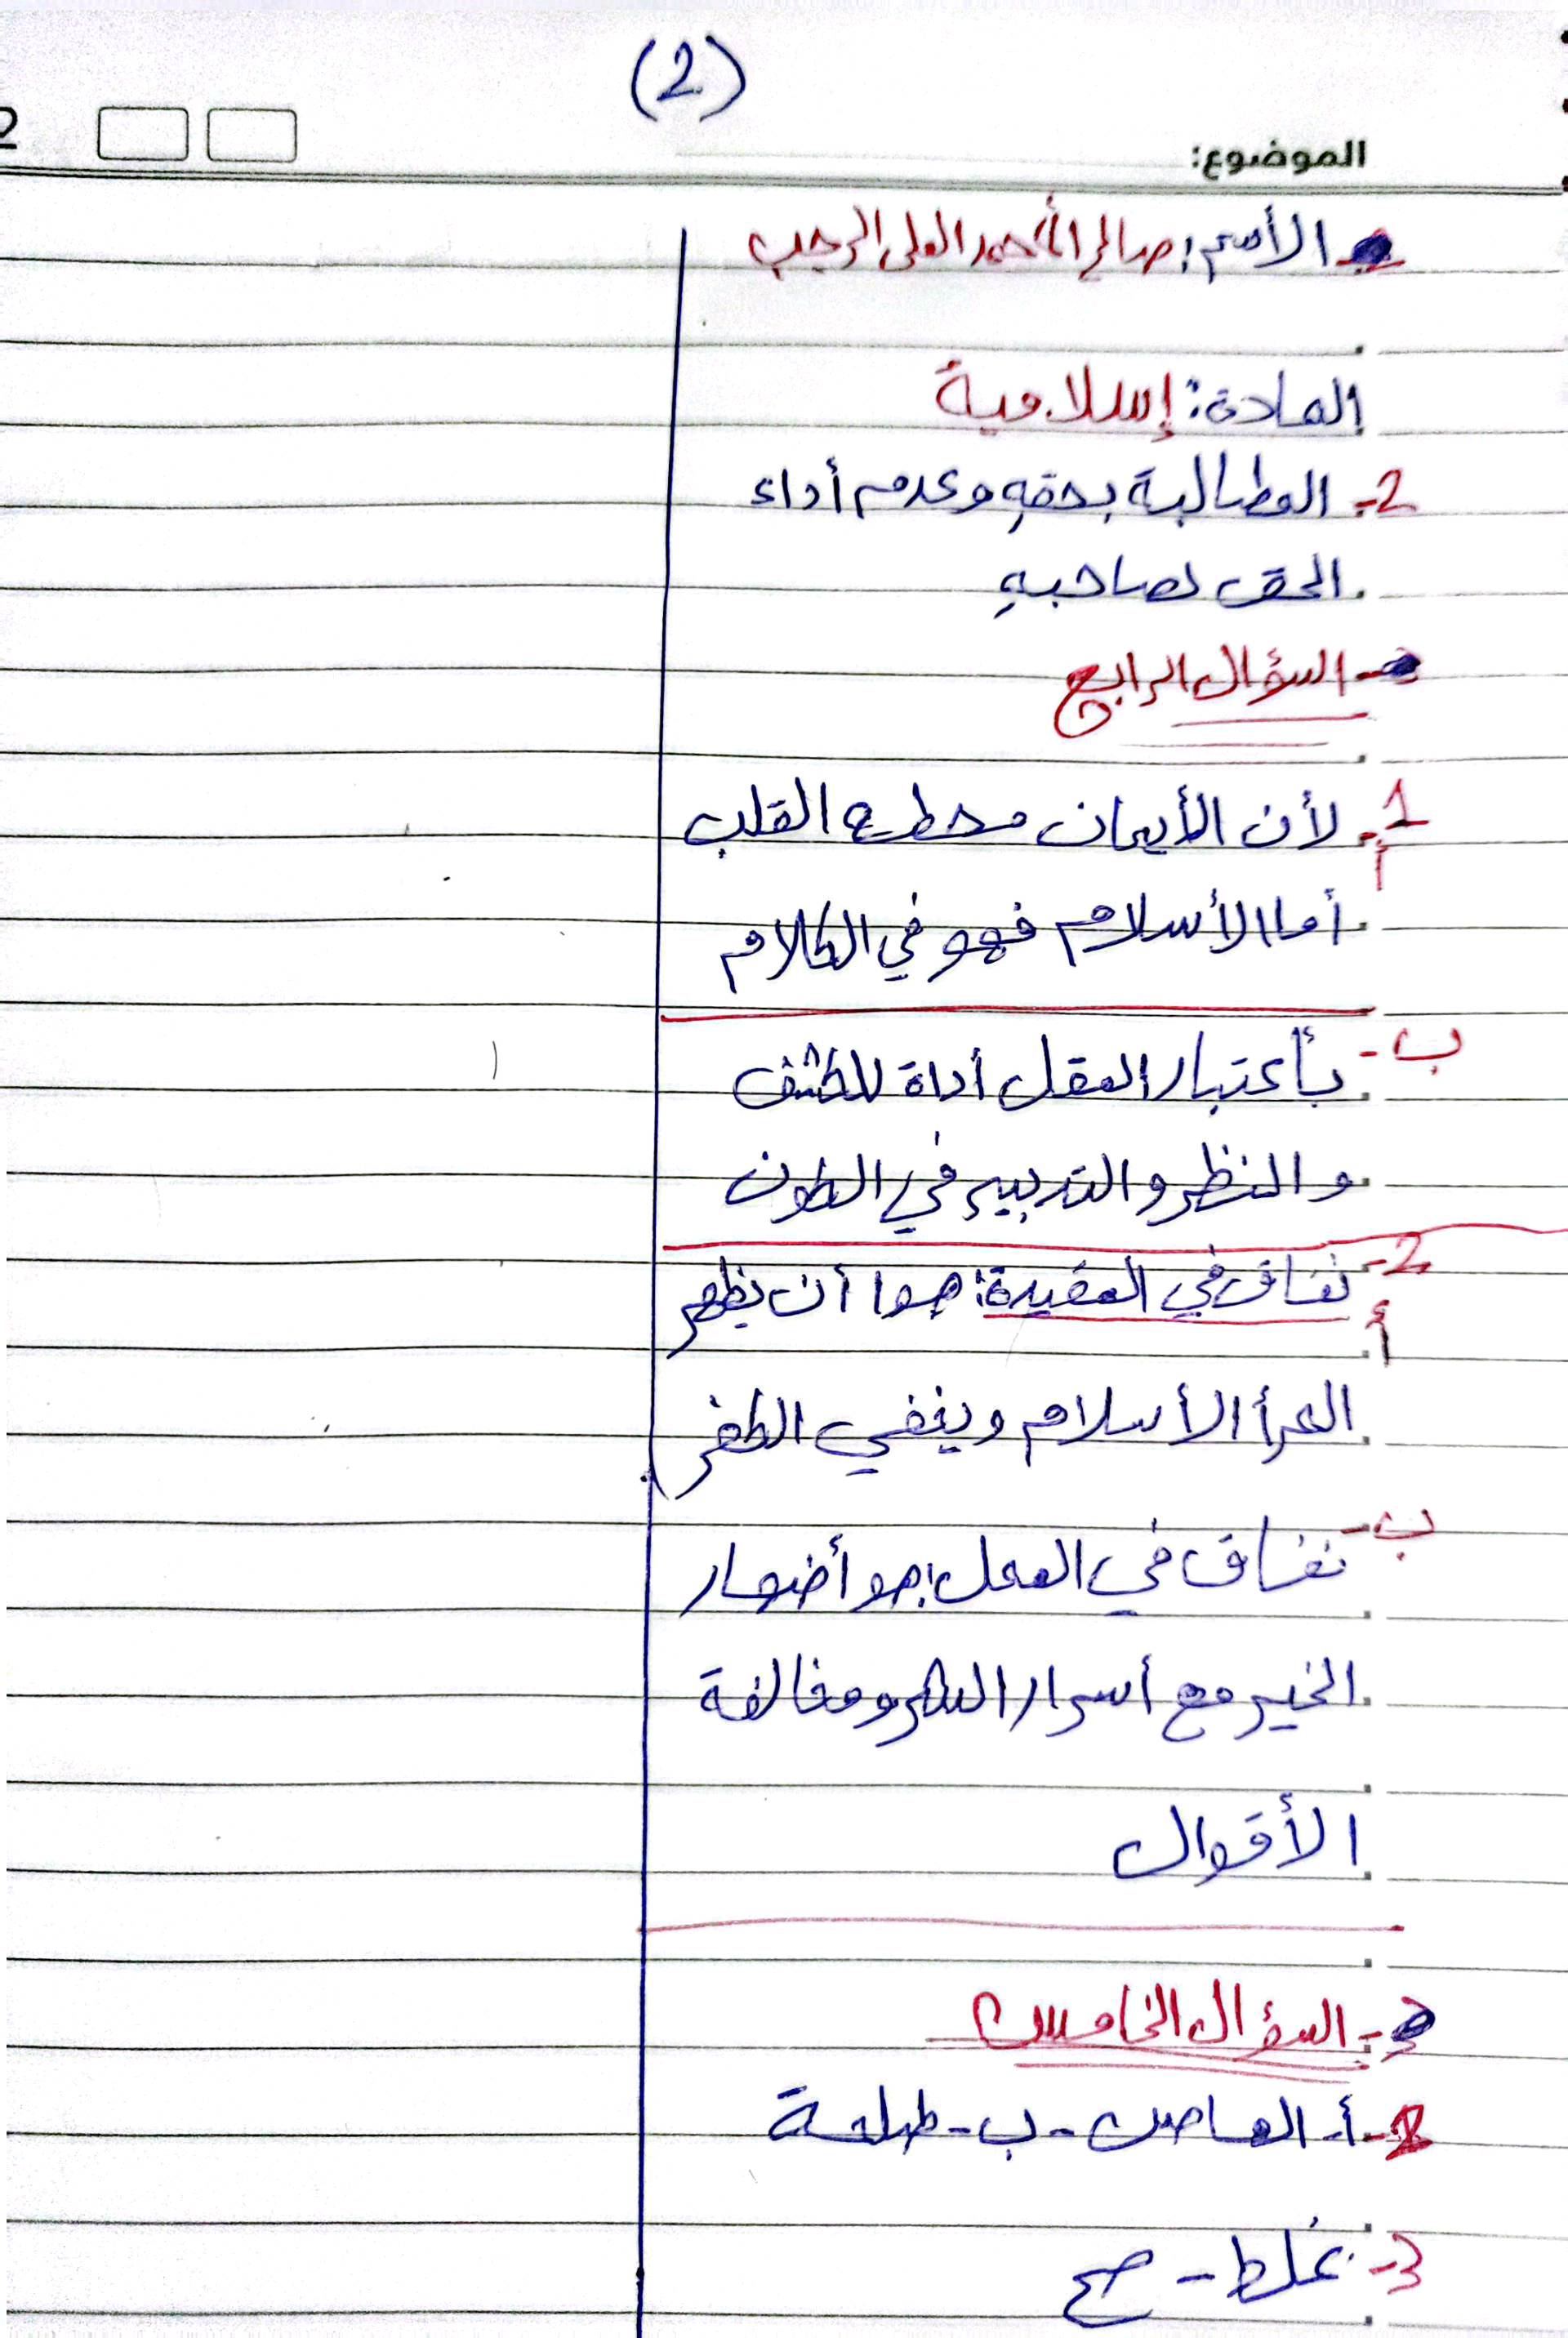 (2)
الموضوع:
الأسم: صالح أحمد العلي الرجب
المادة: إسلامية
2- المطالبة بحقهِ وعدم أداء
الحق لصاحبهِ
السؤال الرابع
1- لأن الأيمان محطه القلب
أ
أما الأسلام فهو في الكلام
ب- بأعتبار العقل أداة للكشف
و النظر و التدبير في الكون
2- نفاق في العقيدة: هوا أن يظهر
أ
المرأ الأسلام ويخفي الكفر
ب- نفاق في العمل: هو أضهار
الخير مع أسرار الشر ومخالفة
الأقوال
السؤال الخامس
أ- العاص - ب - طلحة
3- غلط - صح